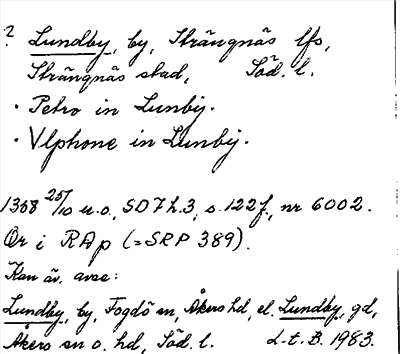 ?
Lundby, by, Strängnäs lfs,
Strängnäs stad, Söd. l.
· Petro in Lunbij.
· Vlphone in Lunbij.
1358 25/10 u.o., SD 7 h.3, s. 122f, nr 6002.
Or i RAp (=SRP 389).
Kan äv. avse:
Lundby, by, Fogdö sn, Åkers hd, el. Lundby, gd,
Åkers sn o. hd, Söd. l. L.t.B. 1983.